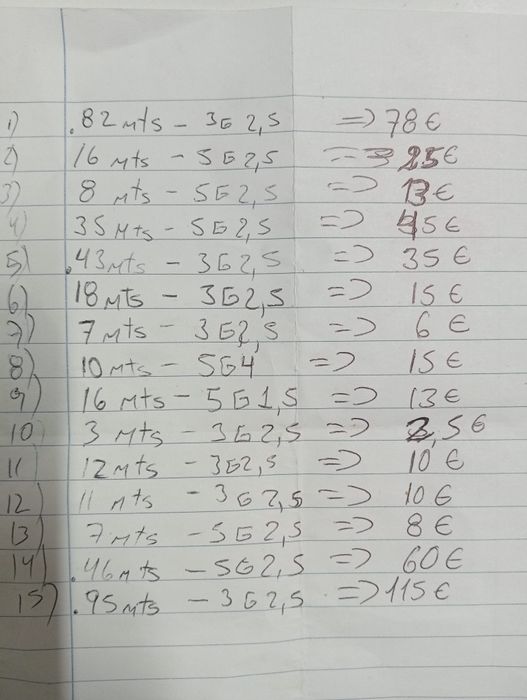 1) .82 mts - 3G2,5 => 78 €
2) 16 mts - 5G2,5 => 25 €
3) 8 mts - 5G2,5 => 13 €
4) 35 Mts - 5G2,5 => 45 €
5) .43 Mts - 3G2,5 => 35 €
6) 18 mts - 3G2,5 => 15 €
7) 7 mts - 3G2,5 => 6 €
8) 10 mts - 5G4 => 15 €
9) 16 Mts - 5G1,5 => 13 €
10 3 Mts - 3G2,5 => 2,5 €
11 12 Mts - 3G2,5 => 10 €
12) 11 Mts - 3G2,5 => 10 €
13) 7 Mts - 5G2,5 => 8 €
14) .46 Mts - 5G2,5 => 60 €
15) .95 Mts - 3G2,5 => 115 €